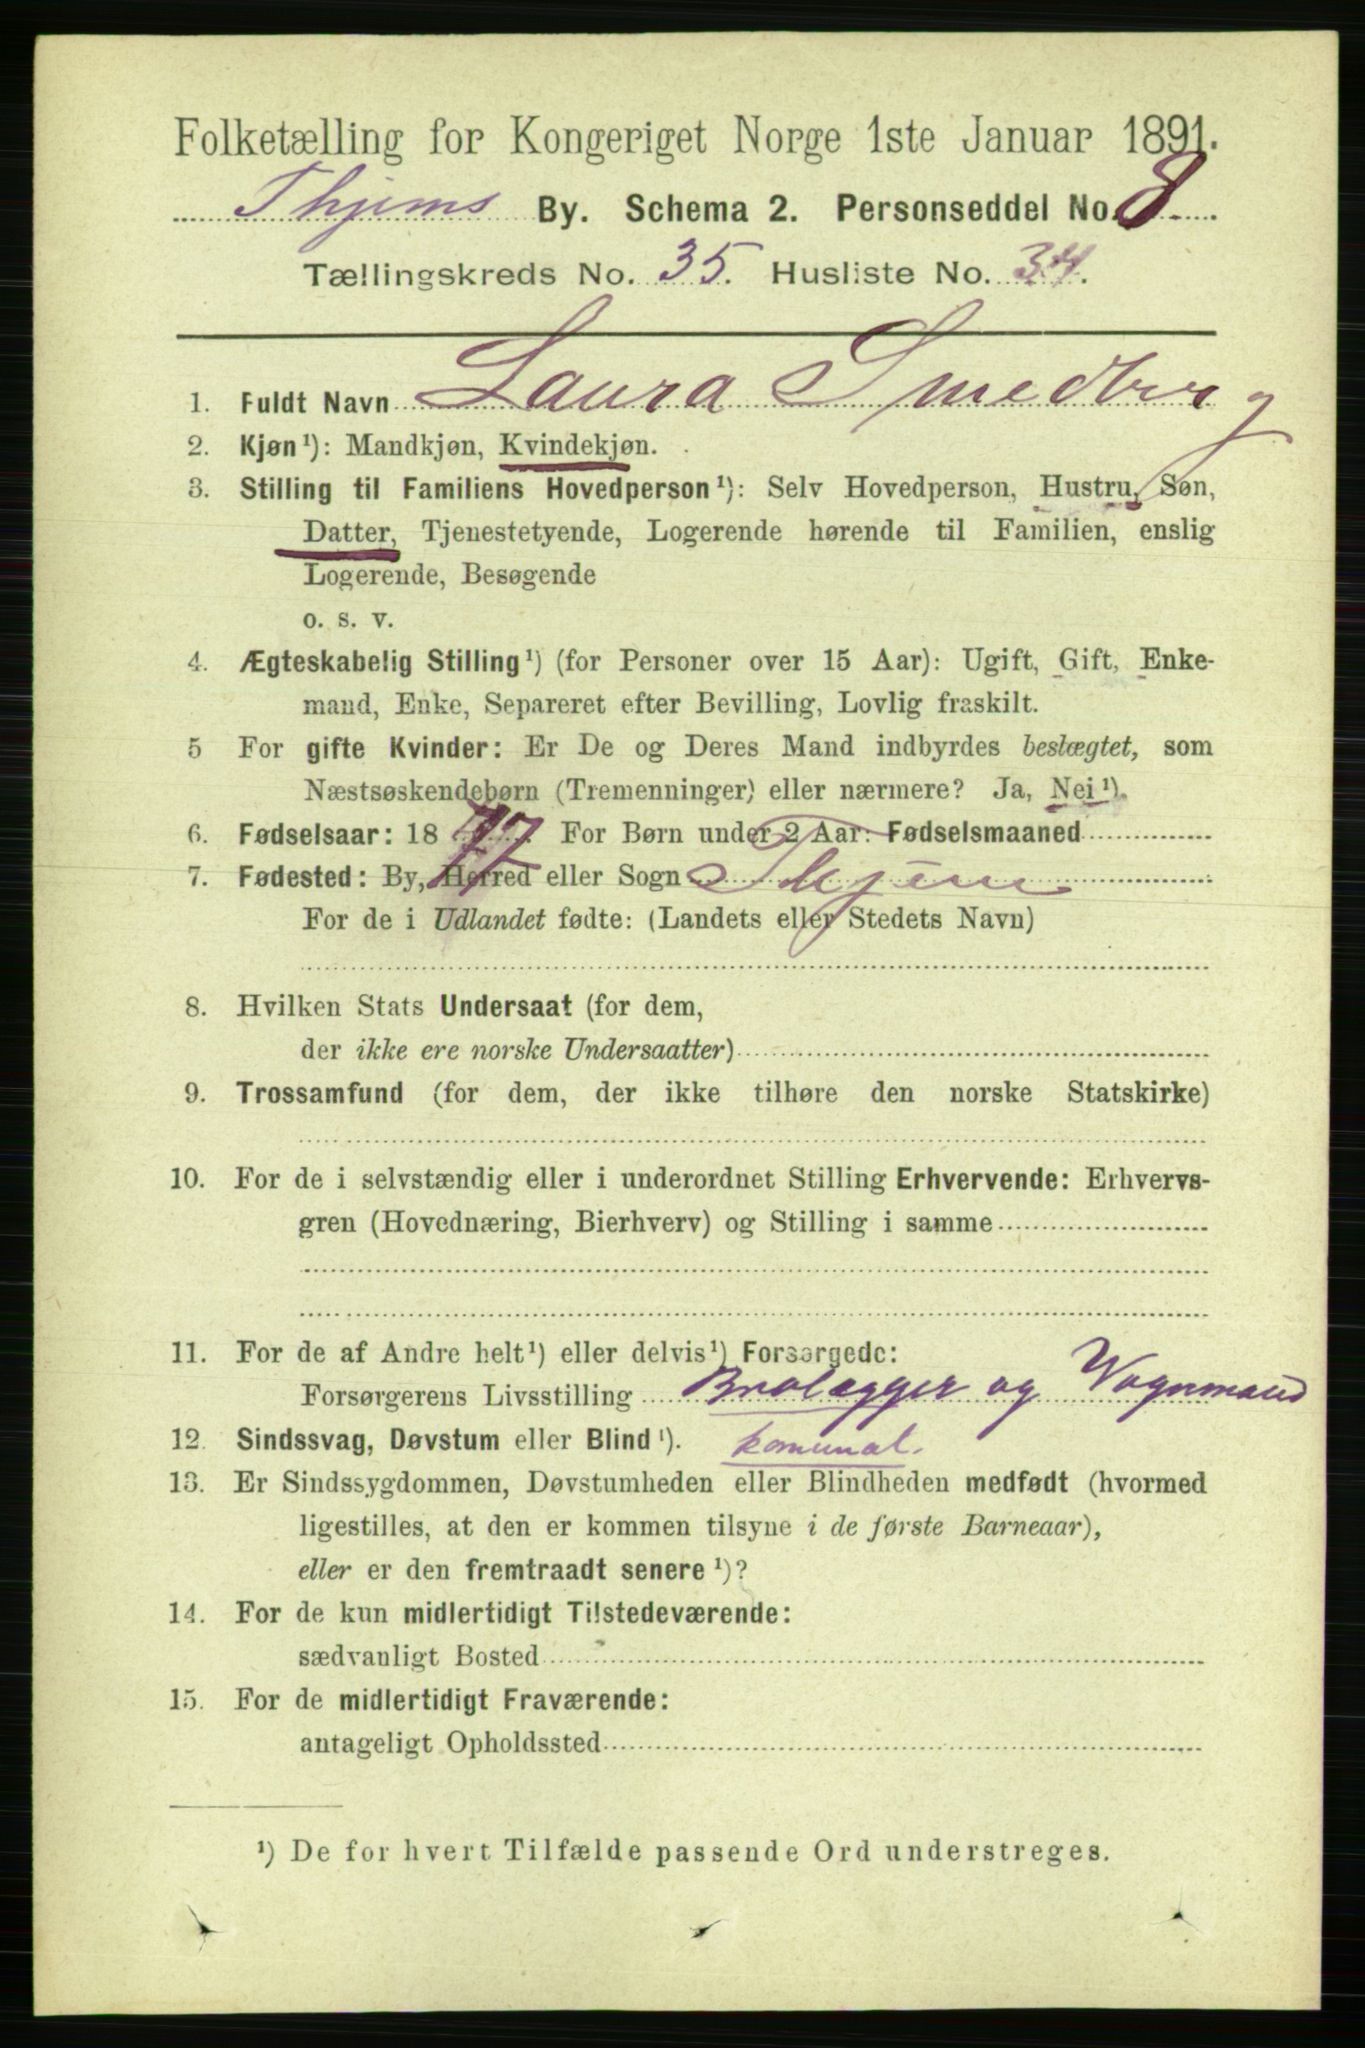 Folketælling for Kongeriget Norge 1ste Januar 1891.
Thjems By. Schema 2. Personseddel No. 8
Tællingskreds No. 35. Husliste No. 34.
1. Fuldt Navn Laura Smedberg
2. Kjøn¹): Mandkjøn, Kvindekjøn.
3. Stilling til Familiens Hovedperson¹): Selv Hovedperson, Hustru, Søn,
Datter, Tjenestetyende, Logerende hørende til Familien, enslig
Logerende, Besøgende
o. s. v.
4. Ægteskabelig Stilling¹) (for Personer over 15 Aar): Ugift, Gift, Enke-
mand, Enke, Separeret efter Bevilling, Lovlig fraskilt.
5 For gifte Kvinder: Er De og Deres Mand indbyrdes beslægtet, som
Næstsøskendebørn (Tremenninger) eller nærmere? Ja, Nei¹).
6. Fødselsaar: 1877. For Børn under 2 Aar: Fødselsmaaned
7. Fødested: By, Herred eller Sogn Thjem
For de i Udlandet fødte: (Landets eller Stedets Navn)
8. Hvilken Stats Undersaat (for dem,
der ikke ere norske Undersaatter)
9. Trossamfund (for dem, der ikke tilhøre den norske Statskirke)
10. For de i selvstændig eller i underordnet Stilling Erhvervende: Erhvervs-
gren (Hovednæring, Bierhverv) og Stilling i samme
11. For de af Andre helt¹) eller delvis¹) Forsørgede:
Forsørgerens Livsstilling Brolægger og Vognmand
12. Sindssvag, Døvstum eller Blind¹). komunal.
13. Er Sindssygdommen, Døvstumheden eller Blindheden medfødt (hvormed
ligestilles, at den er kommen tilsyne i de første Barneaar),
eller er den fremtraadt senere¹)?
14. For de kun midlertidigt Tilstedeværende:
sædvanligt Bosted
15. For de midlertidigt Fraværende:
antageligt Opholdssted
¹) De for hvert Tilfælde passende Ord understreges.